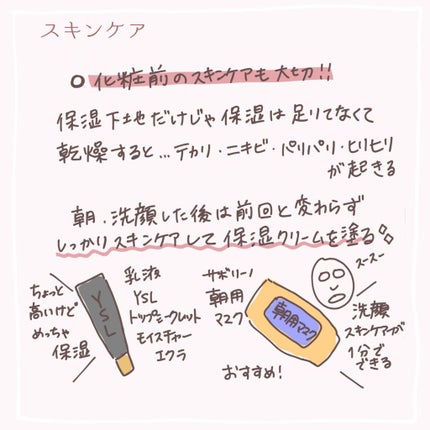 スキンケア
○ 化粧前のスキンケアも大切!!
保湿下地だけじゃ保湿は足りてなくて
乾燥すると…テカリ・ニキビ・パリパリ・ヒリヒリ
が起きる
朝、洗顔した後は前回と変わらず
しっかりスキンケアして保湿クリームを塗る
ちょっと
高いけど
めっちゃ
保湿
YSL
乳液
YSL
トップシークレット
モイスチャー
エクラ
サボリーノ
朝用
マスク
朝用マスク
おすすめ!
スースー
洗顔
スキンケアが
1分で
できる